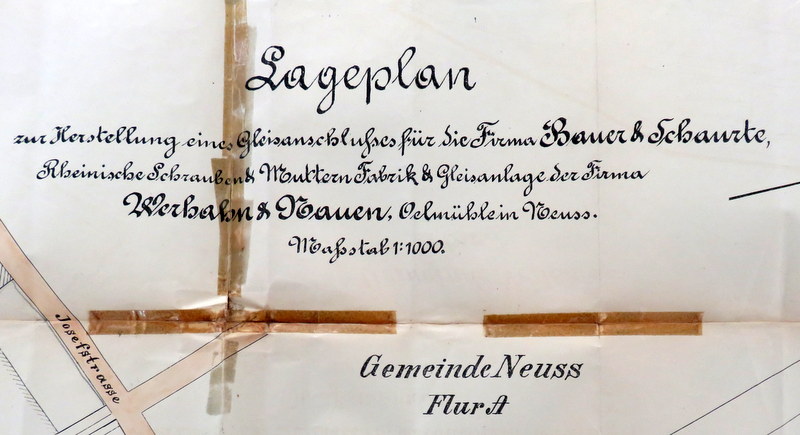 Lageplan
zur Herstellung eines Gleisanschlußes für die Firma Bauer & Schaurte,
Rheinische Schrauben & Muttern Fabrik & Gleisanlage der Firma
Werhahn & Nauen, Oelmühle in Neuss.
Maßstab 1:1000.
Josefstrasse
Gemeinde Neuss
Flur A